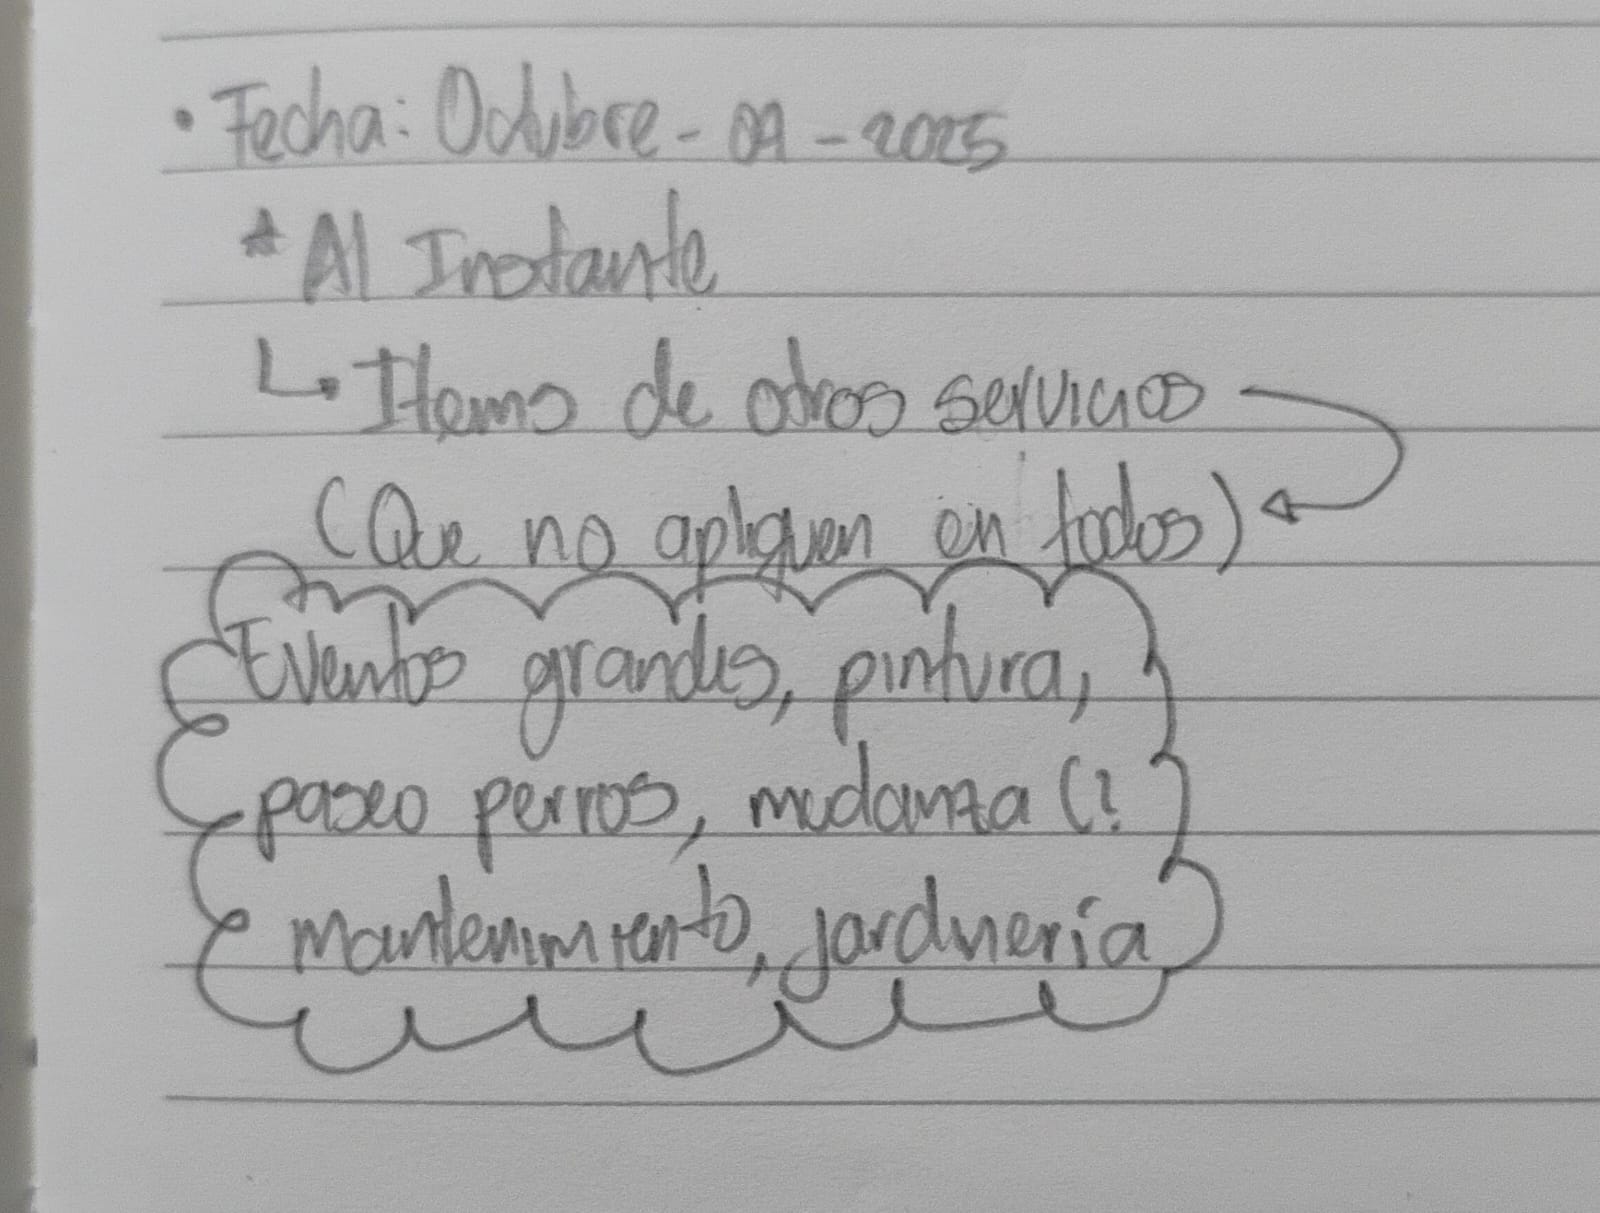 • Fecha: Octubre - 09 - 2025
* Al Instante
↳ Items de otros servicios
(Que no apliquen en todos)
Eventos grandes, pintura,
paseo perros, mudanza (?
mantenimiento, jardinería